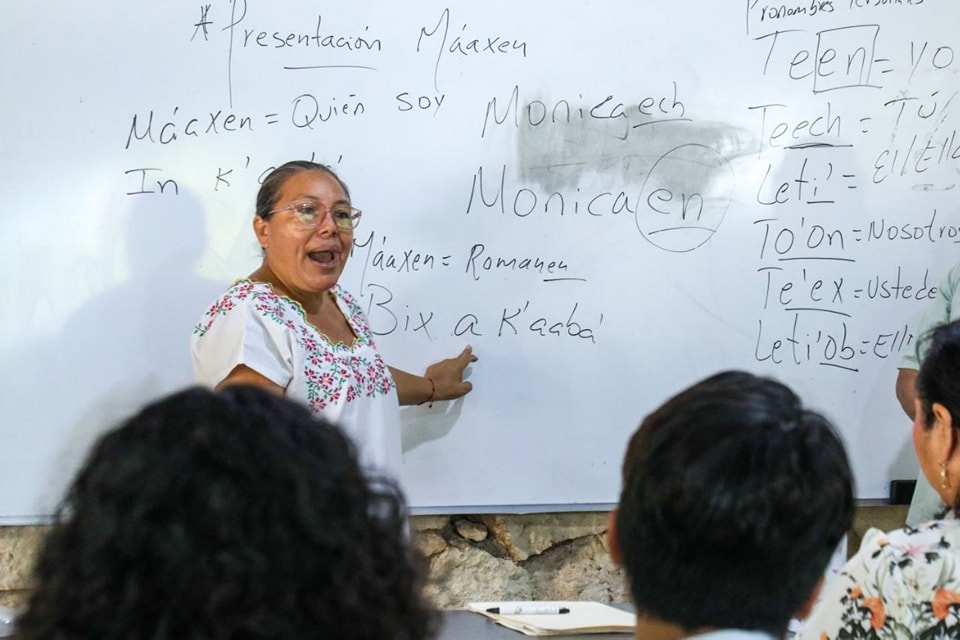 # Presentación Máaxen
Máaxen = Quién soy
In
Monicaech
Monicaen
Máaxen = Romanen
Bix a K'aaba'
Pronombres
Teen = yo
Teech = Tú
Leti' = Él/Ella
To'on = Nosotros
Te'ex = Ustede
Leti'ob = Ell